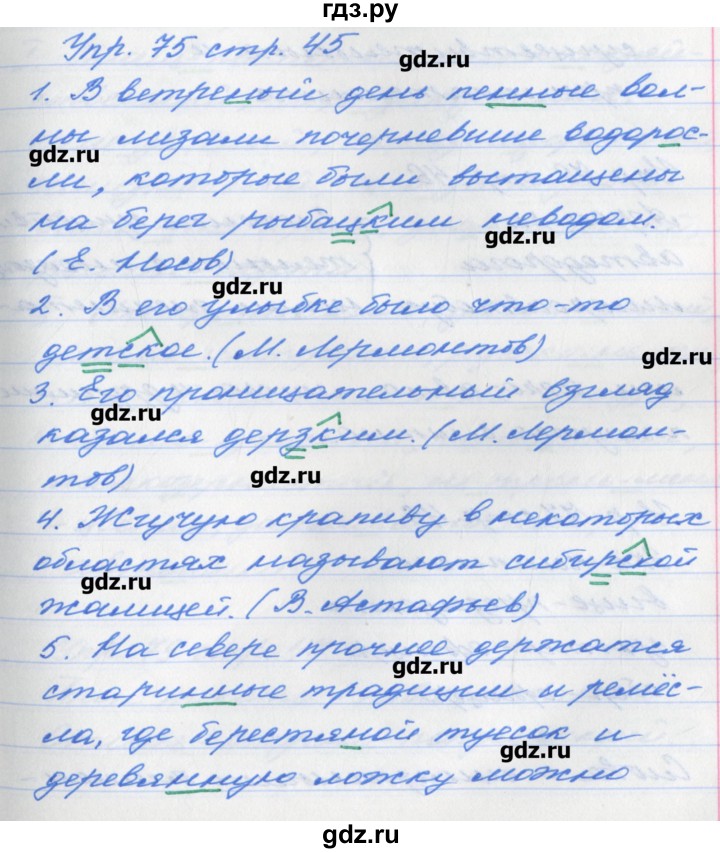 гдз.ру
Упр. 75 стр. 45
gdz.ru
1. В ветреный день пенные вол-
ны лизали почерневшие водорос-
gdz.ru
ли, которые были вытащены
на берег рыбацким неводом.
gdz.ru
(Е. Носов)
gdz.ru
2. В его улыбке было что-то
детское. (М. Лермонтов)
gdz.ru
3. Его проницательный взгляд
gdz.ru
казался дерзким. (М. Лермон-
тов)
gdz.ru
4. Жгучую крапиву в некоторых
областях называют сибирской
gdz.ru
жалицей. (В. Астафьев)
5. На севере прочнее держатся
gdz.ru
старинные традиции и ремёс-
ла, где берестяной туесок и
gdz.ru
деревянную ложку можно
gdz.ru